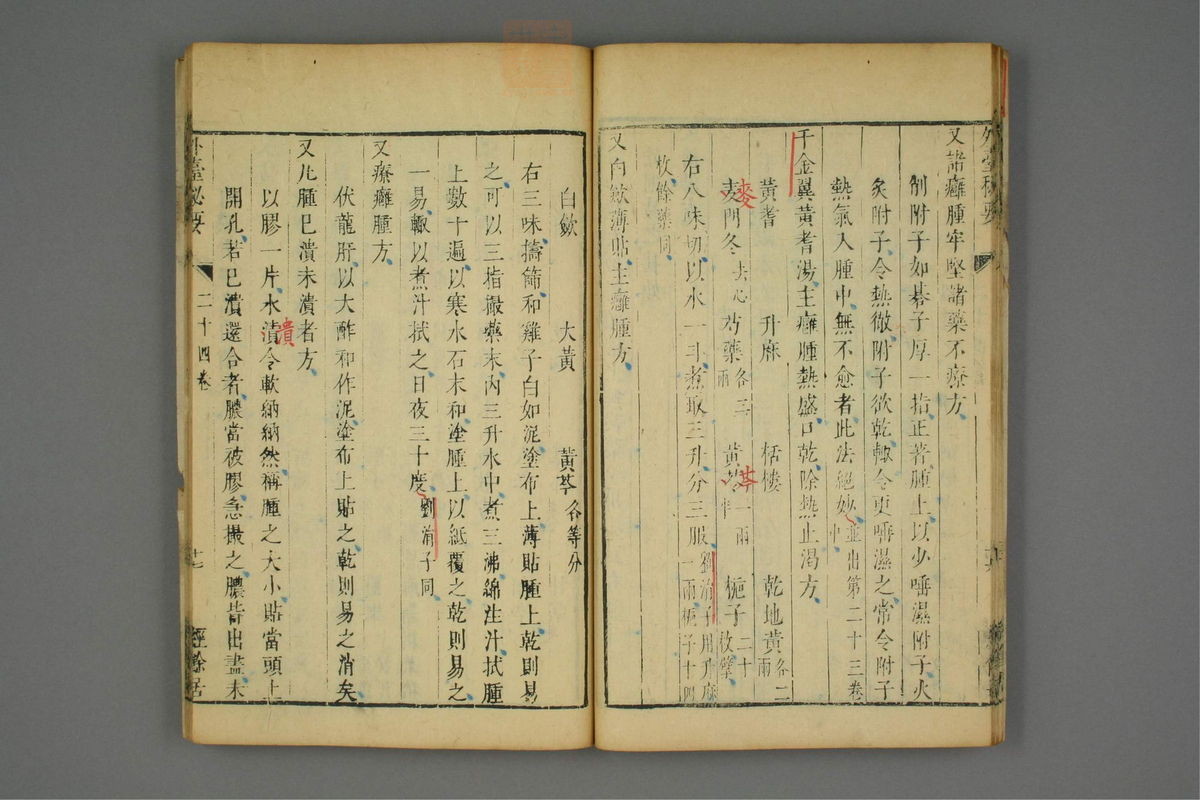 外臺秘要
又諸癰腫牢堅諸藥不療方
削附子如碁子厚一指正著腫上以少唾濕附子火
灸附子令熱徹附子欲乾輙令更唾濕之常令附子
熱氣入腫中無不愈者此法絕妙並出第二十三卷中
千金翼黃耆湯主癰腫熱盛口乾除熱止渴方
黃耆 升麻 栝樓 乾地黃各二兩
麥
麦門冬去心 芍藥各三兩 黃芩一兩半 梔子二十枚擘
芩
右八味切以水一斗煮取三升分三服劉涓子用升麻一兩梔子十四
枚餘藥同
又白斂薄貼主癰腫方
白斂 大黃 黃芩各等分
右三味擣篩和雞子白如泥塗布上薄貼腫上乾則易
之可以三指撮藥末內三升水中煮三沸綿注汁拭腫
上數十遍以寒水石末和塗腫上以紙覆之乾則易之
一易輙以煮汁拭之日夜三十度劉涓子同
又療癰腫方
伏龍肝以大酢和作泥塗布上貼之乾則易之消矣
又凡腫已潰未潰者方
以膠一片水漬令軟納納然稱腫之大小貼當頭上
潰
開孔若已潰還合者膿當被膠急撮之膿皆出盡未
外臺秘要 二十四卷 十七 經餘居